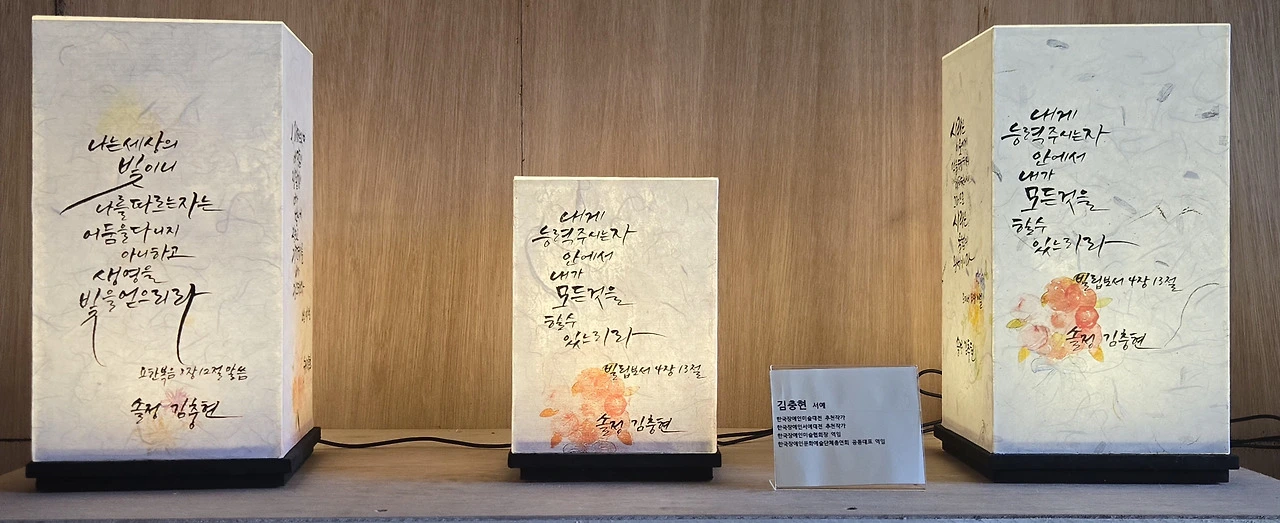 나는 세상의
빛이니
나를 따르는 자는
어둠을 다니지
아니하고
생명을
빛을 얻으리라
요한복음 8장 12절 말씀
솔정 김충현
내게
능력주시는자
안에서
내가
모든것을
할수
있느니라
빌립보서 4장 13절
솔정 김충현
김충현 서예
한국장애인미술대전 추천작가
한국장애인서예대전 추천작가
한국장애인미술협회장 역임
한국장애인문화예술단체총연회 공동대표 역임
내게
능력주시는자
안에서
내가
모든것을
할수
있느니라
빌립보서 4장 13절
솔정 김충현